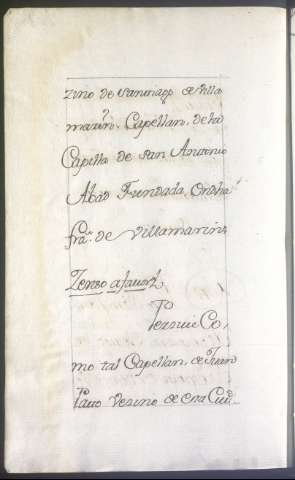 zino de Santiago de Villa
marin. Capellan, de la
Capilla de San Antonio
Abad Fundada, en dha
fra. de Villamarin
Zenso a favor
Co,
mo tal Capellan, de Juan
Vesino de esa Ciud.